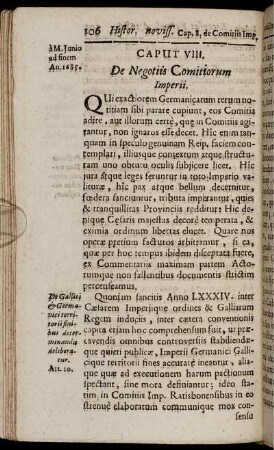 106 Histor. noviss. Cap. 8, de Comitiis Imp.
à M. Junio
ad finem
An. 1685.
CAPUT VIII.
De Negotiis Comitiorum
Imperii.
QUi exactiorem Germanicarum rerum no-
titiam sibi parare cupiunt, eos Comitia
adire, aut illorum certè, quæ in Comitiis agi-
tantur, non ignaros esse decet. Hîc enim tan-
quam in speculo genuinam Reip. faciem con-
templari, illiusque connexum atque structu-
ram uno obtutu oculis subjicere licet. Hîc
jura atque leges feruntur in toto Imperio va-
lituræ, hîc pax atque bellum decernitur,
fœdera sanciuntur, tributa imperantur, quies
& tranquillitas Provinciis redditur; Hîc de-
nique Cæsaris majestas decorè temperata, &
eximia ordinum libertas elucet. Quare nos
operæ pretium facturos arbitramur, si ea,
quæ per hoc tempus ibidem disceptata fuere,
ex Commentariis maximam partem Acto-
rumque non fallentibus documentis strictim
persenseamus.
De Galliæ
& Germa-
niæ terri-
torii fini-
bus deter-
minandis
delibera-
tur.
Art. 10.
Quoniam sancitis Anno LXXXIV. inter
Cæsarem Imperiique ordines & Galliarum
Regem induciis, inter cætera conventionis
capita etiam hoc comprehensum fuit, ut præ-
cavendis omnibus controversiis stabiliendæ-
que quieti publicæ, Imperii Germanici Galli-
cique territorii fines accuratè ineantur, aliæ-
que quæ ad executionem harum pactionum
spectant, sine mora definiantur; ideo sta-
tim in Comitiis Imp. Ratisbonensibus in eo
strenuè elaboratum communique mox con-
sensu